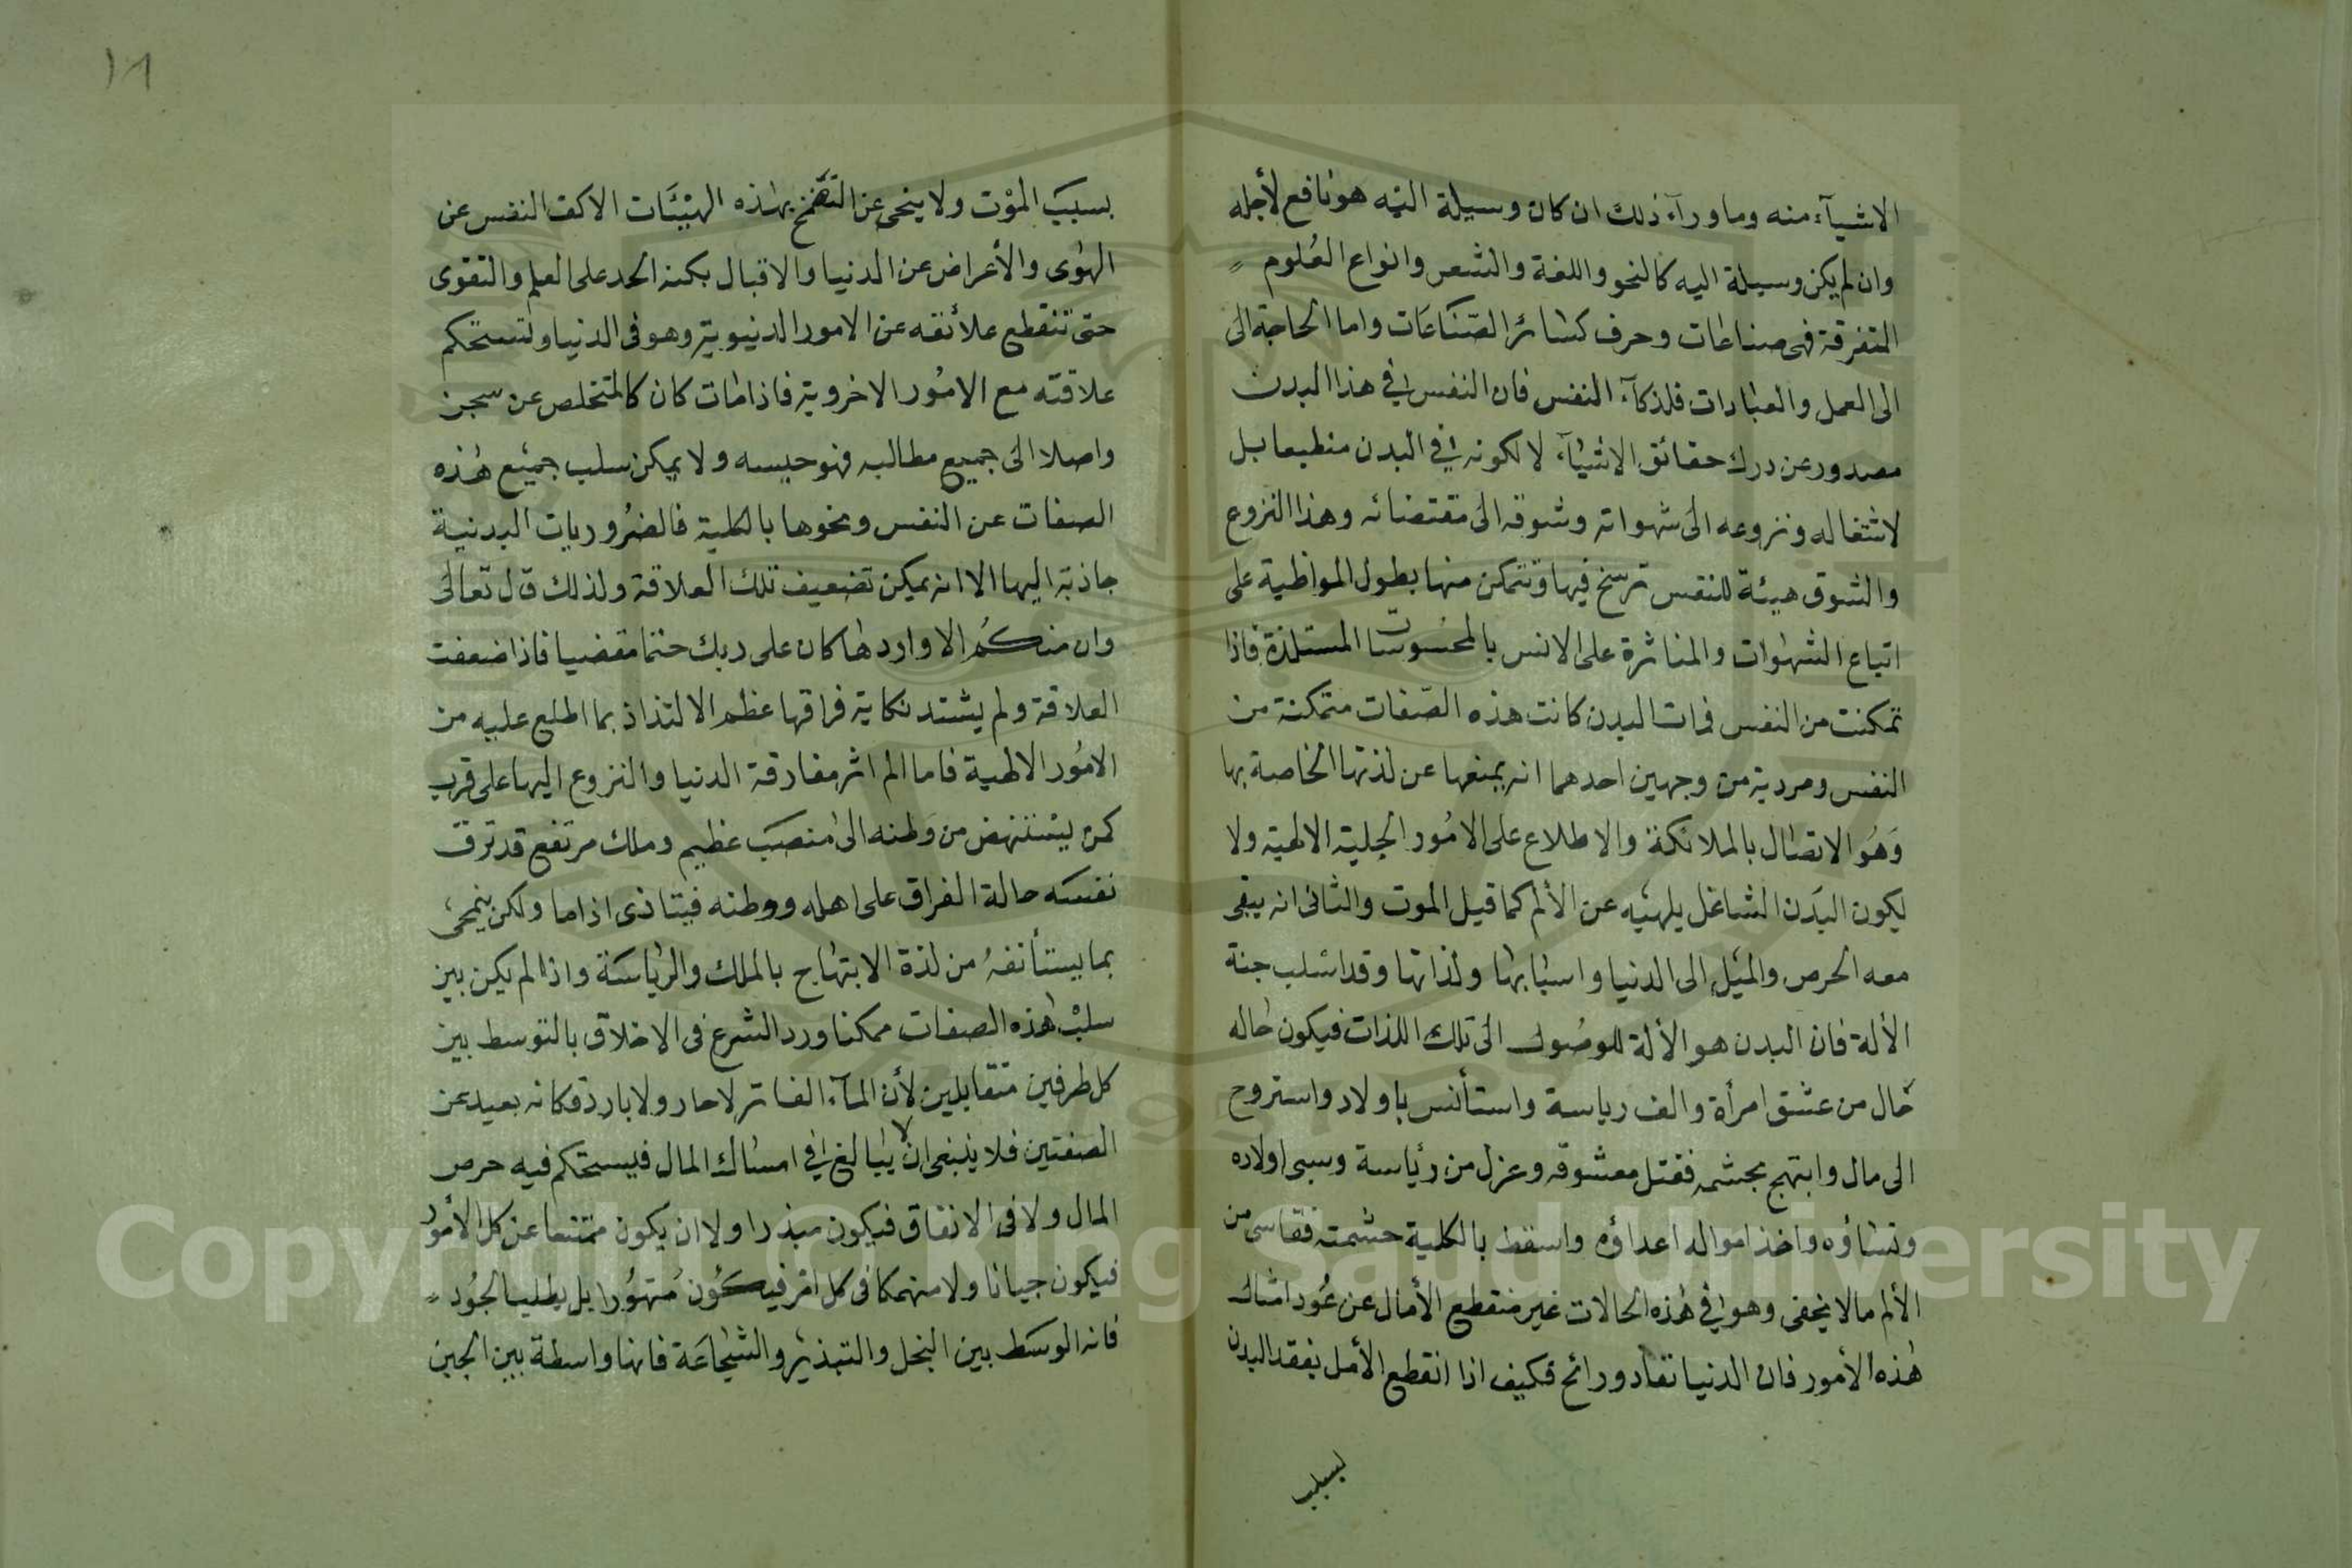 الاشيآء منه وما ورآء ذلك ان كان وسيلة اليه هو نافع لأجله
وان لم يكن وسيلة اليه كالنحو واللغة والشعر وانواع العُلوم
المتفرقة فهى صناعات وحرف كسائر الصّنَاعَات واما الحاجة الى
الى العمل والعبادات فلذكآء النفس فان النفس فى هذا البدن
مصدور عن درك حقائق الاشيآء لا لكونه فى البدن منطبعا بل
لاشتغاله ونزوعه الى شهواته وشوقه الى مقتضائه وهذا النزوع
والشوق هيئة للنفس ترسخ فيها وتتمكن منها بطول المواظبة على
اتباع الشهوات والمثاثرة على الانس بالمحسُوسات المستلذة فاذا
تمكنت من النفس فمات البدن كانت هذه الصّفات متمكنة من
النفس ومردية من وجهين احدهما انه يمنعها عن لذتها الخاصة بها
وَهُو الاتصال بالملائكة والاطلاع على الامُور الجلية الالهية ولا
يكون البدَن الشاغل يلهيه عن الألم كما قيل الموت والثانى انه يبقى
معه الحرص والميْل الى الدنيا واسبابها ولذاتها وقد اسلب جنة
الألة فان البدن هو الألة للوصُول الى تلك اللذات فيكون حاله
حَال من عشق امرأة والف رياسة واستأنس باولاد واستروح
الى مال وابتهج بحشمه فقتل معشوقه وعزل من رئاسة وسبى اولاده
ونساؤه واخذ امواله اعداؤه واسقط بالكلية حشمته فقاسى من
الألم مالا يخفى وهو فى هذه الحالات غير منقطع الأمال عن عُود امثال
هذه الأمور فان الدنيا تغاد ورائح فكيف اذا انقطع الأمل بفقد البدن
بسبب
١٨
بسبَب الموْت ولا ينحى عن التضَمّخ بهذه الهيْئَات الا كف النفس عن
الهوى والأعراض عن الدنيا والاقبال بكنه الحد على العلم والتقوى
حتى تنقطع علائقه عن الامور الدنيوية وهو فى الدنيا وتستحكم
علاقته مع الامُور الاخروية فاذا مات كان كالمتخلص عن سجن
واصلا الى جميع مطالبه فهو حبيسه ولا يمكن سلب جميْع هذه
الصفات عن النفس ومحوها بالكلية فالضرُوريات البدنية
جاذبة اليها الا انه يمكن تضعيف تلك العلاقة ولذلك قال تعالى
وان منكُم الا واردها كان على ربك حتما مقضيا فاذا ضعفت
العلاقة ولم يشتد نكاية فراقها عظم الالتذاذ بما اطلع عليه من
الامُور الالهية فاما الم اثر مفارقة الدنيا والنزوع اليها على قرب
كمن يستنهض من وطنه الى منصَب عظيم وملك مرتفع قد ترق
نفسَه حالة الفراق على اهله ووطنه فيتاذى اذا ما ولكن ينمحى
بما يستأنفهُ من لذة الابتهاج بالملك والرياسَة واذا لم يكن بين
سلبْ هذه الصفات ممكنا ورد الشرع فى الاخلاق بالتوسط بين
كل طرفين متقابلين لأن المآء الفاتر لا حار ولا بارد فكانه بعيد عن
الصفتين فلا ينبغى ان لا يبالغ فى امساك المال فيستحكم فيه حرص
المال ولا فى الانفاق فيكون مبذرا ولا ان يكون ممتنعا عن كل الأمُور
فيكون جبانا ولا منهمكا فى كل امْر فيكُون مُتهوُرا بل يطلب الجُود
فانه الوسَط بين البخل والتبذير والشجاعَة فانها واسطة بين الجبن
Copyright © King Saud University
1957